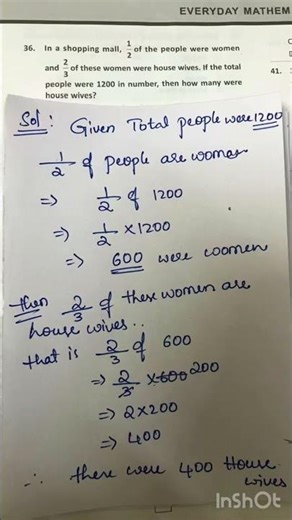 EVERYDAY MATHEM
36. In a shopping mall, 1/2 of the people were women
and 2/3 of these women were house wives. If the total
people were 1200 in number, then how many were
house wives?
41.
Sol : Given Total people were 1200
1/2 of people are woman
⇒ 1/2 of 1200
⇒ 1/2 × 1200
⇒ 600 were women
then 2/3 of these women are
house wives..
that is 2/3 of 600
⇒ 2/3 × 600 200
⇒ 2 × 200
⇒ 400
∴ there were 400 House
wives
InShOt